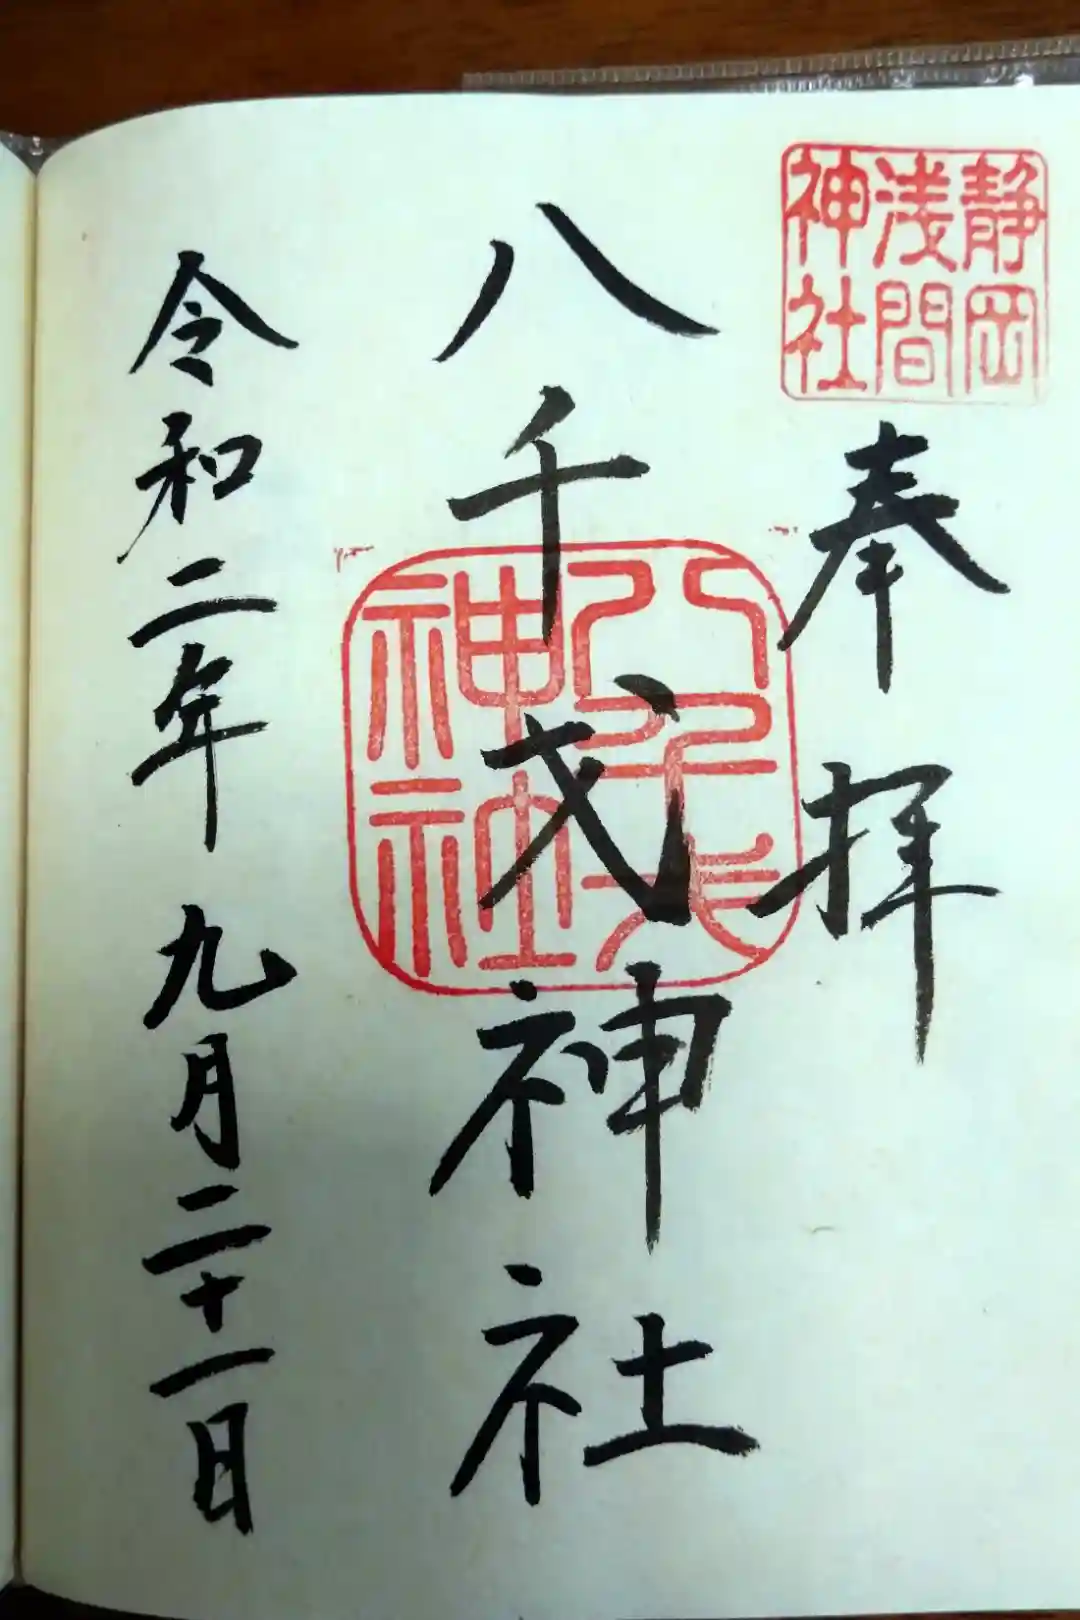 静岡
浅間
神社
奉拝
八千戈神社
八千戈
神社
令和二年九月二十一日